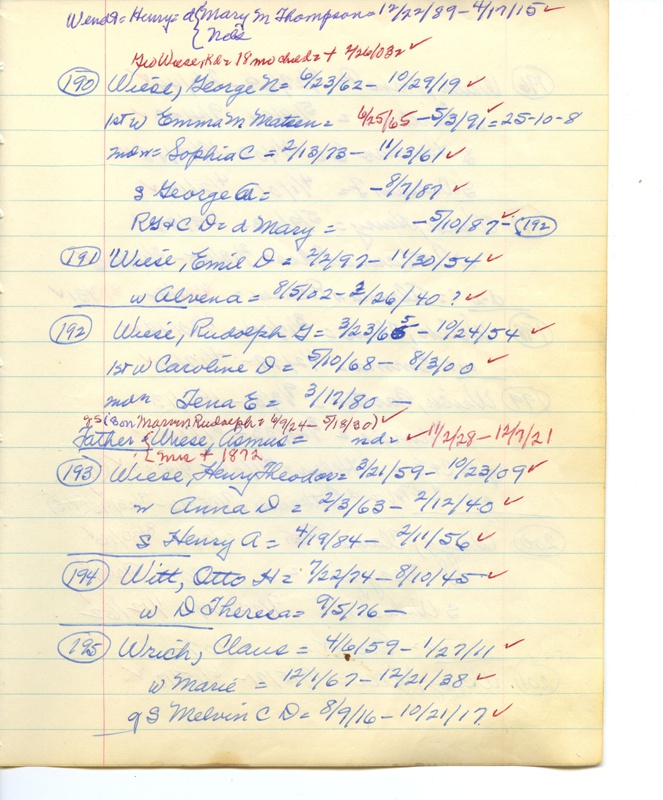 Wendt = Henry = d { Mary M Thompson = 12/22/89 - 4/17/15 ✓
{ Nds
Geo Wiese, Rd = 18 mo = + 2/26/03 ✓
(190) Wiese, George N = 6/23/62 - 10/29/19 ✓
1st w Emma M Matzen = 6/25/65 - 5/3/91 = 25-10-8 ✓
mdw = Sophia C = 2/13/73 - 11/13/61 ✓
s George A = - 8/7/87 ✓
RG & C D = d Mary = - 5/10/87 ✓ - (192)
(191) Wiese, Emil D = 2/2/97 - 11/30/54 ✓
w Alvena = 8/5/02 - 2/26/40 ? ✓
(192) Wiese, Rudolph G = 3/23/65 - 10/24/54 ✓
1st w Caroline D = 5/10/68 - 8/3/00 ✓
mdw Tena E = 3/17/80 -
gs (son Marvin Rudolph = 4/9/24 - 5/18/30) ✓
Father { Wiese, Asmus = nd = ✓ 11/2/28 - 12/7/21
{ Mrs + 1872
(193) Wiese, Henry Theodor = 3/21/59 - 10/23/09 ✓
w Anna D = 2/3/63 - 2/12/40 ✓
s Henry A = 4/19/84 - 2/11/56 ✓
(194) Witt, Otto H = 7/22/74 - 8/10/45 ✓
w D Theresa = 9/5/76 -
(195) Wrich, Claus = 4/6/59 - 1/27/11 ✓
w Marie = 12/1/67 - 12/21/38 ✓
g S Melvin C D = 8/9/16 - 10/21/17 ✓